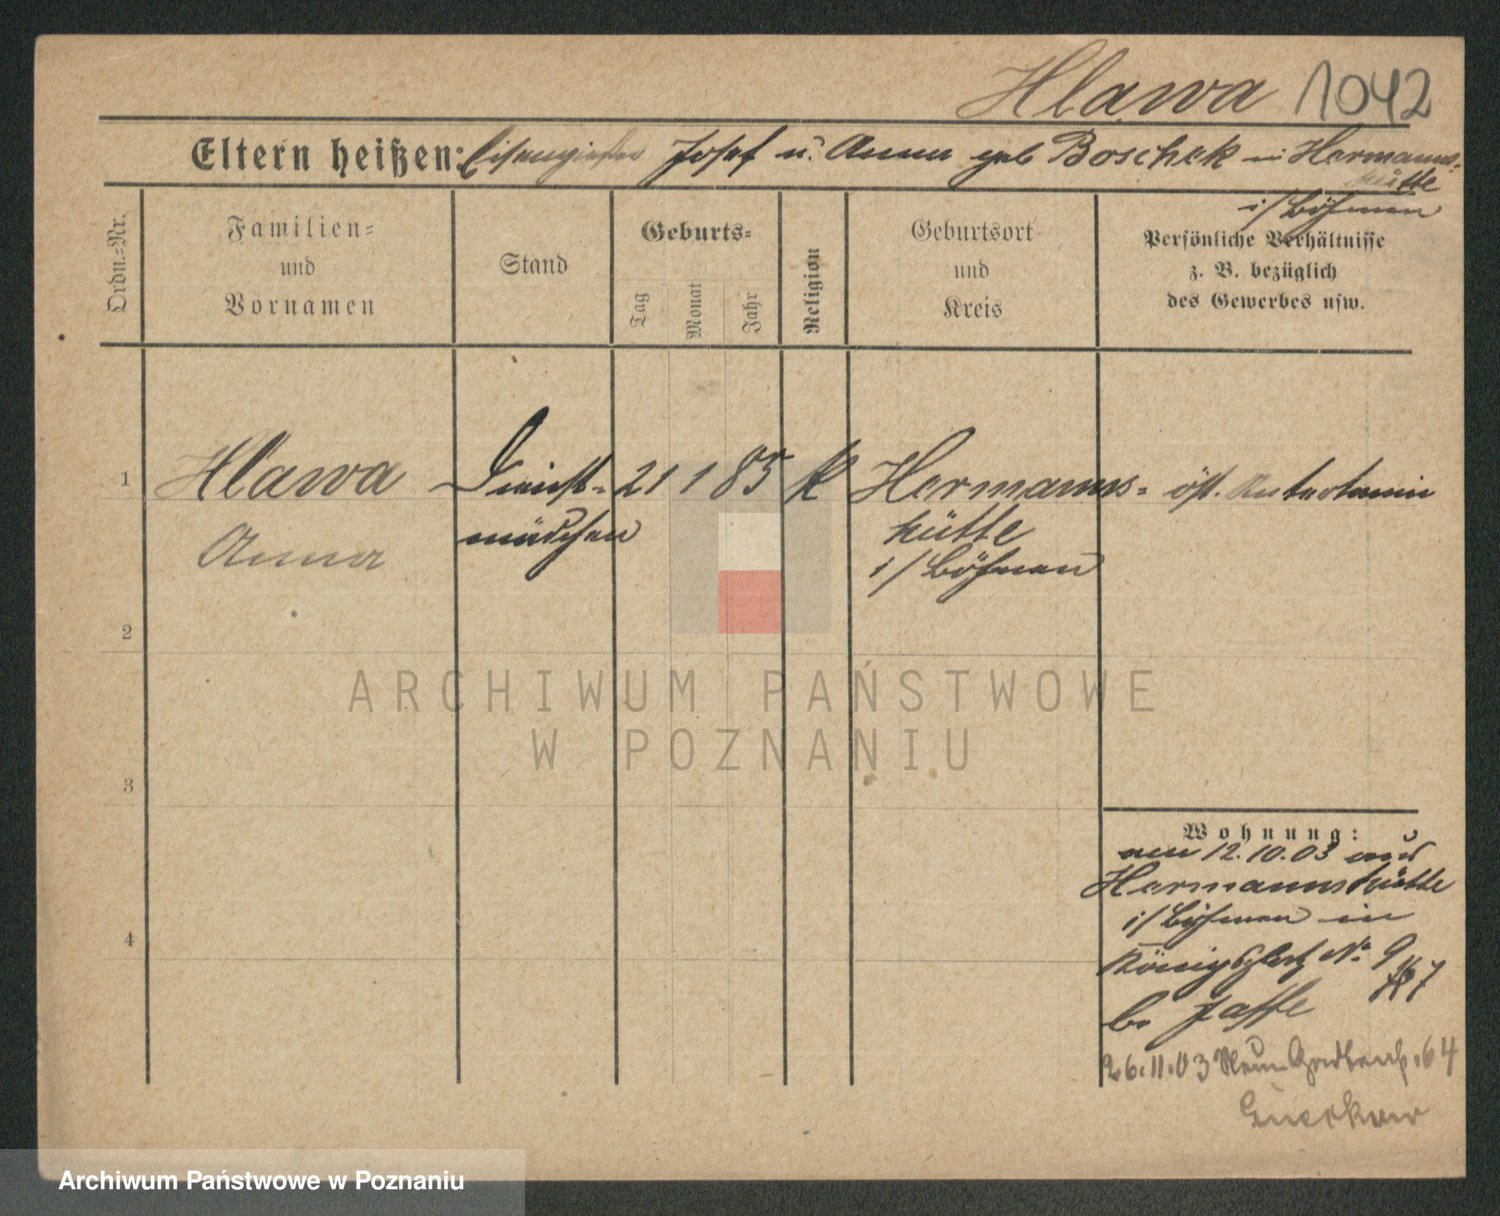 Hlawa 1042
Eltern heißen: Eisengießer Josef u. Anna geb Boschek in Hermanns-
hütte
i/Böhmen
Ordn.-Nr.
Familien-
und
Vornamen
Stand
Geburts-
Tag
Monat
Jahr
Religion
Geburtsort
und
Kreis
Persönliche Verhältnisse
z. B. bezüglich
des Gewerbes usw.
1 Hlawa Dienst- 21 1 85 k Hermanns- öst.
Anna mädchen hütte
i/Böhmen
2
3
4
Wohnung:
am 12.10.03 aus
Hermannshütte
i/Böhmen in
Königsplatz No. 9
b. Jaffe
26.11.03 64
ARCHIWUM PAŃSTWOWE
W POZNANIU
Archiwum Państwowe w Poznaniu